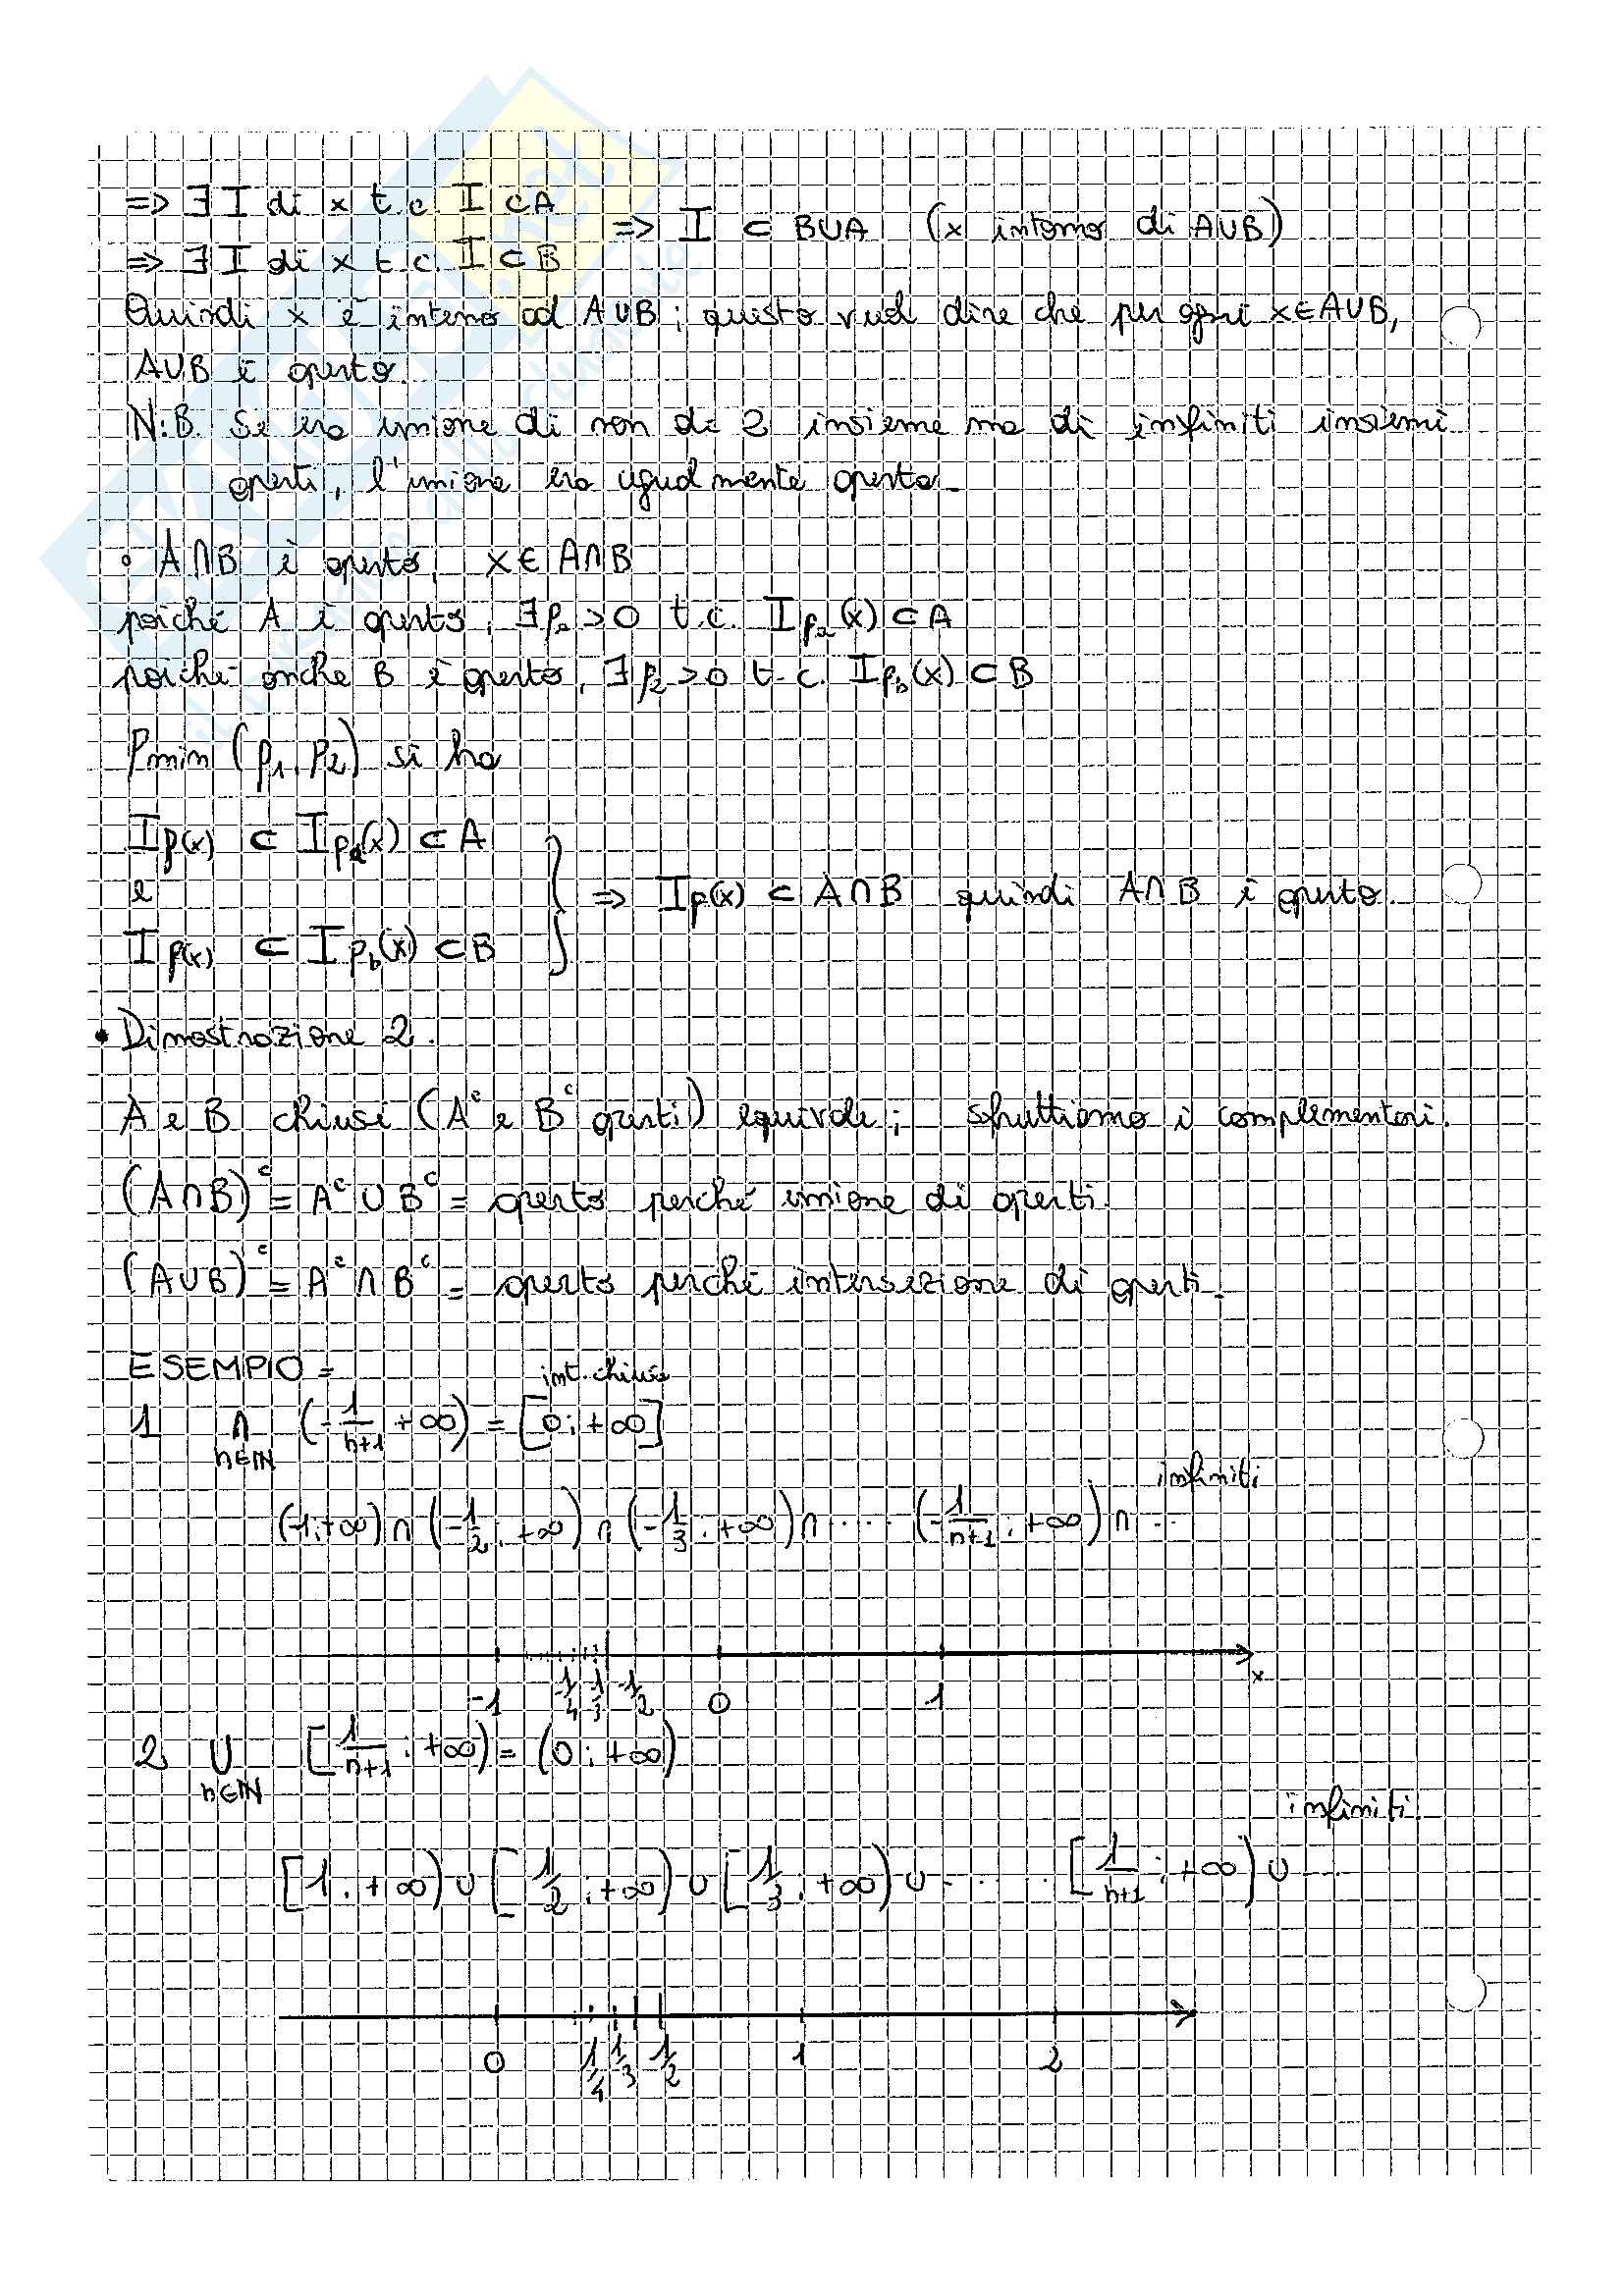 => ∃ I di x t.c. I ⊂ A
=> I ⊂ B∪A (x interno di A∪B)
=> ∃ I di x t.c. I ⊂ B
Quindi x è interno ad A∪B; questo vuol dire che per ogni x∈A∪B,
A∪B è aperto.
N.B. Se era unione di non di 2 insieme ma di infiniti insiemi
aperti, l'unione era ugualmente aperta.
• A∩B è aperto, x∈A∩B
poiché A è aperto, ∃ρa>0 t.c. Iρa(x) ⊂ A
poiché anche B è aperto, ∃ρ2>0 t.c. Iρb(x) ⊂ B
ρmin (ρ1, ρ2) si ha
Iρ(x) ⊂ Iρa(x) ⊂ A
e
=> Iρ(x) ⊂ A∩B quindi A∩B è aperto.
Iρ(x) ⊂ Iρb(x) ⊂ B
• Dimostrazione 2.
A e B chiusi (Aᶜ e Bᶜ aperti) equivale; sfruttiamo i complementari.
(A∩B)ᶜ = Aᶜ ∪ Bᶜ = aperto perché unione di aperti.
(A∪B)ᶜ = Aᶜ ∩ Bᶜ = aperto perché intersezione di aperti.
ESEMPIO =
int. chiuso
1 ∩ n∈ℕ (-1/n+1 +∞) = [0; +∞]
infiniti
(-1;+∞) ∩ (-1/2; +∞) ∩ (-1/3; +∞) ∩ .... (-1/n+1; +∞) ∩ ...
x
-1 -1/4 -1/3 -1/2 0 1
2 ∪ n∈ℕ [1/n+1; +∞) = (0; +∞)
infiniti.
[1; +∞) ∪ [1/2; +∞) ∪ [1/3; +∞) ∪ ..... [1/n+1; +∞) ∪ ....
0 1/4 1/3 1/2 1 2